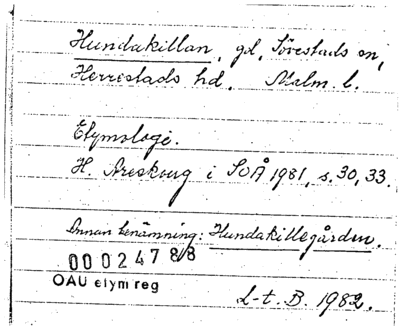 Hundakillan, gd, Sövestads sn,
Herrestads hd. Malm. l.
Etymologi.
H. Areskoug i SOÅ 1981, s. 30, 33.
Annan benämning: Hundakillegården.
00024788
OAU etym reg
L-t. B. 1982.